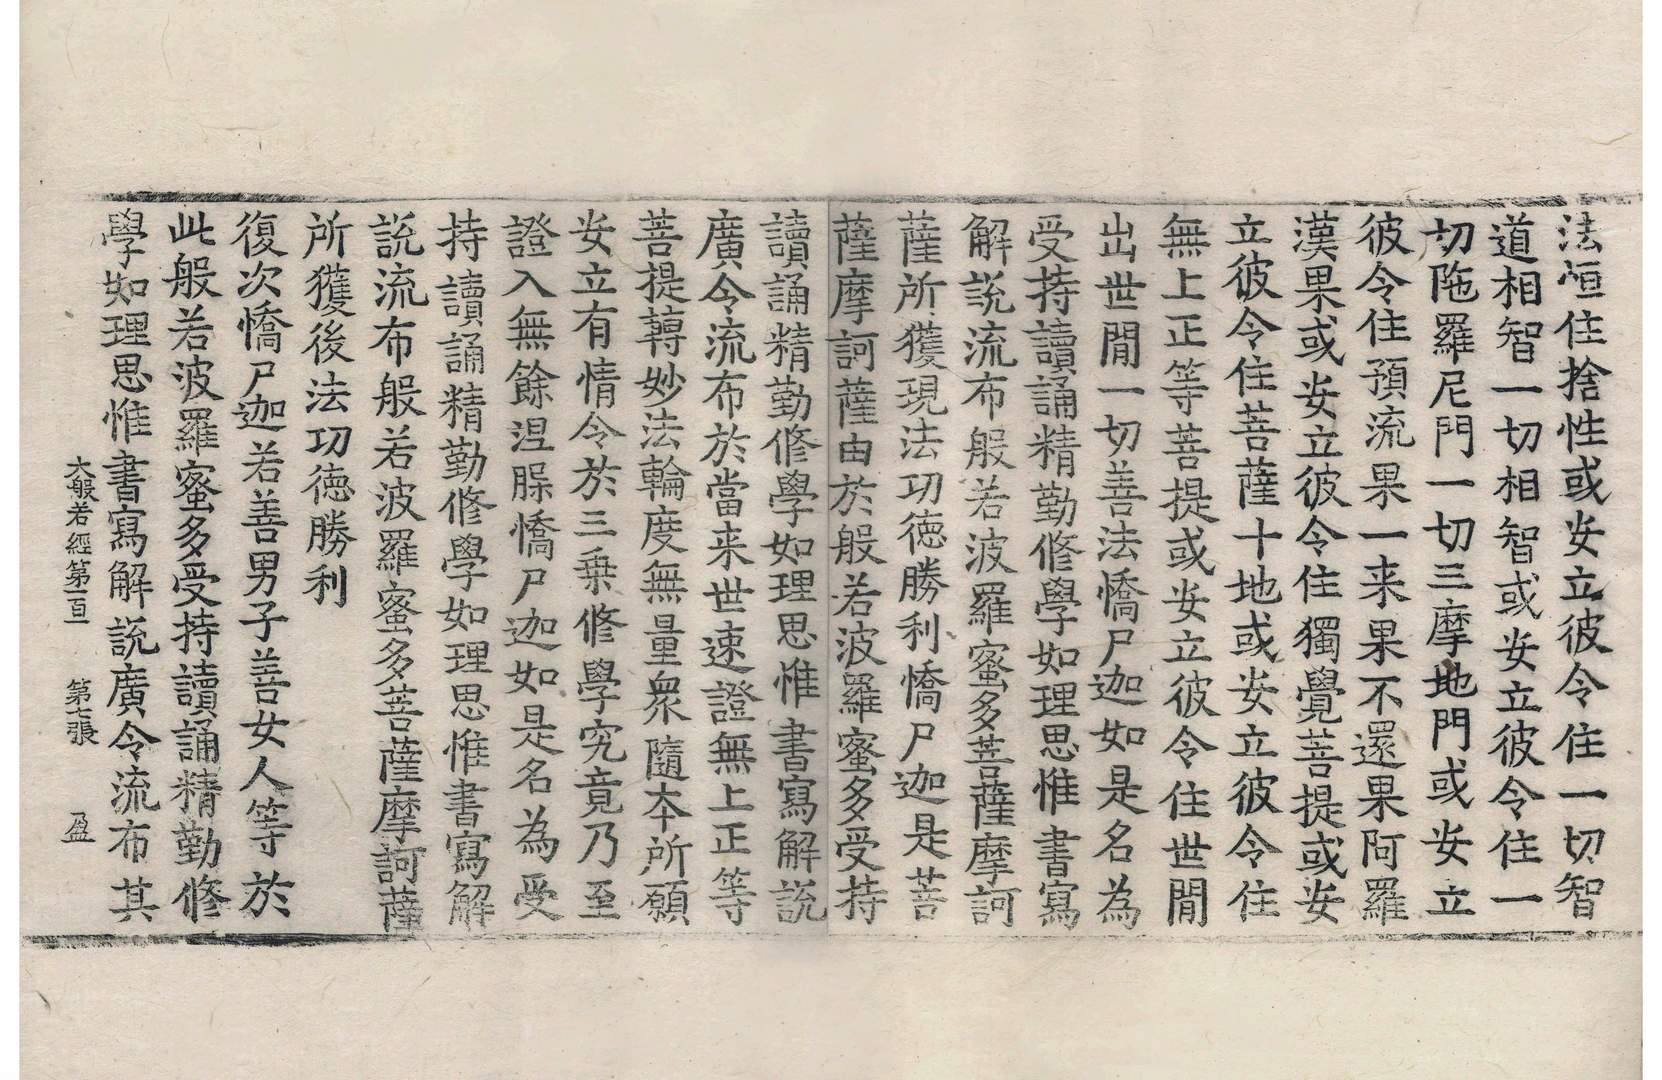 法恒住捨性或安立彼令住一切智
道相智一切相智或安立彼令住一
切陁羅尼門一切三摩地門或安立
彼令住預流果一来果不還果阿羅
漢果或安立彼令住獨覺菩提或安
立彼令住菩薩十地或安立彼令住
無上正等菩提或安立彼令住世閒
出世閒一切善法憍尸迦如是名為
受持讀誦精勤修學如理思惟書寫
解說流布般若波羅蜜多菩薩摩訶
薩所獲現法功德勝利憍尸迦是菩
薩摩訶薩由於般若波羅蜜多受持
讀誦精勤修學如理思惟書寫解說
廣令流布於當来世速證無上正等
菩提轉妙法輪度無量衆隨本所願
安立有情令於三乗修學究竟乃至
證入無餘涅槃憍尸迦如是名為受
持讀誦精勤修學如理思惟書寫解
說流布般若波羅蜜多菩薩摩訶薩
所獲後法功德勝利
復次憍尸迦若善男子善女人等於
此般若波羅蜜多受持讀誦精勤修
學如理思惟書寫解說廣令流布其
大般若經第一百 第七張 盈